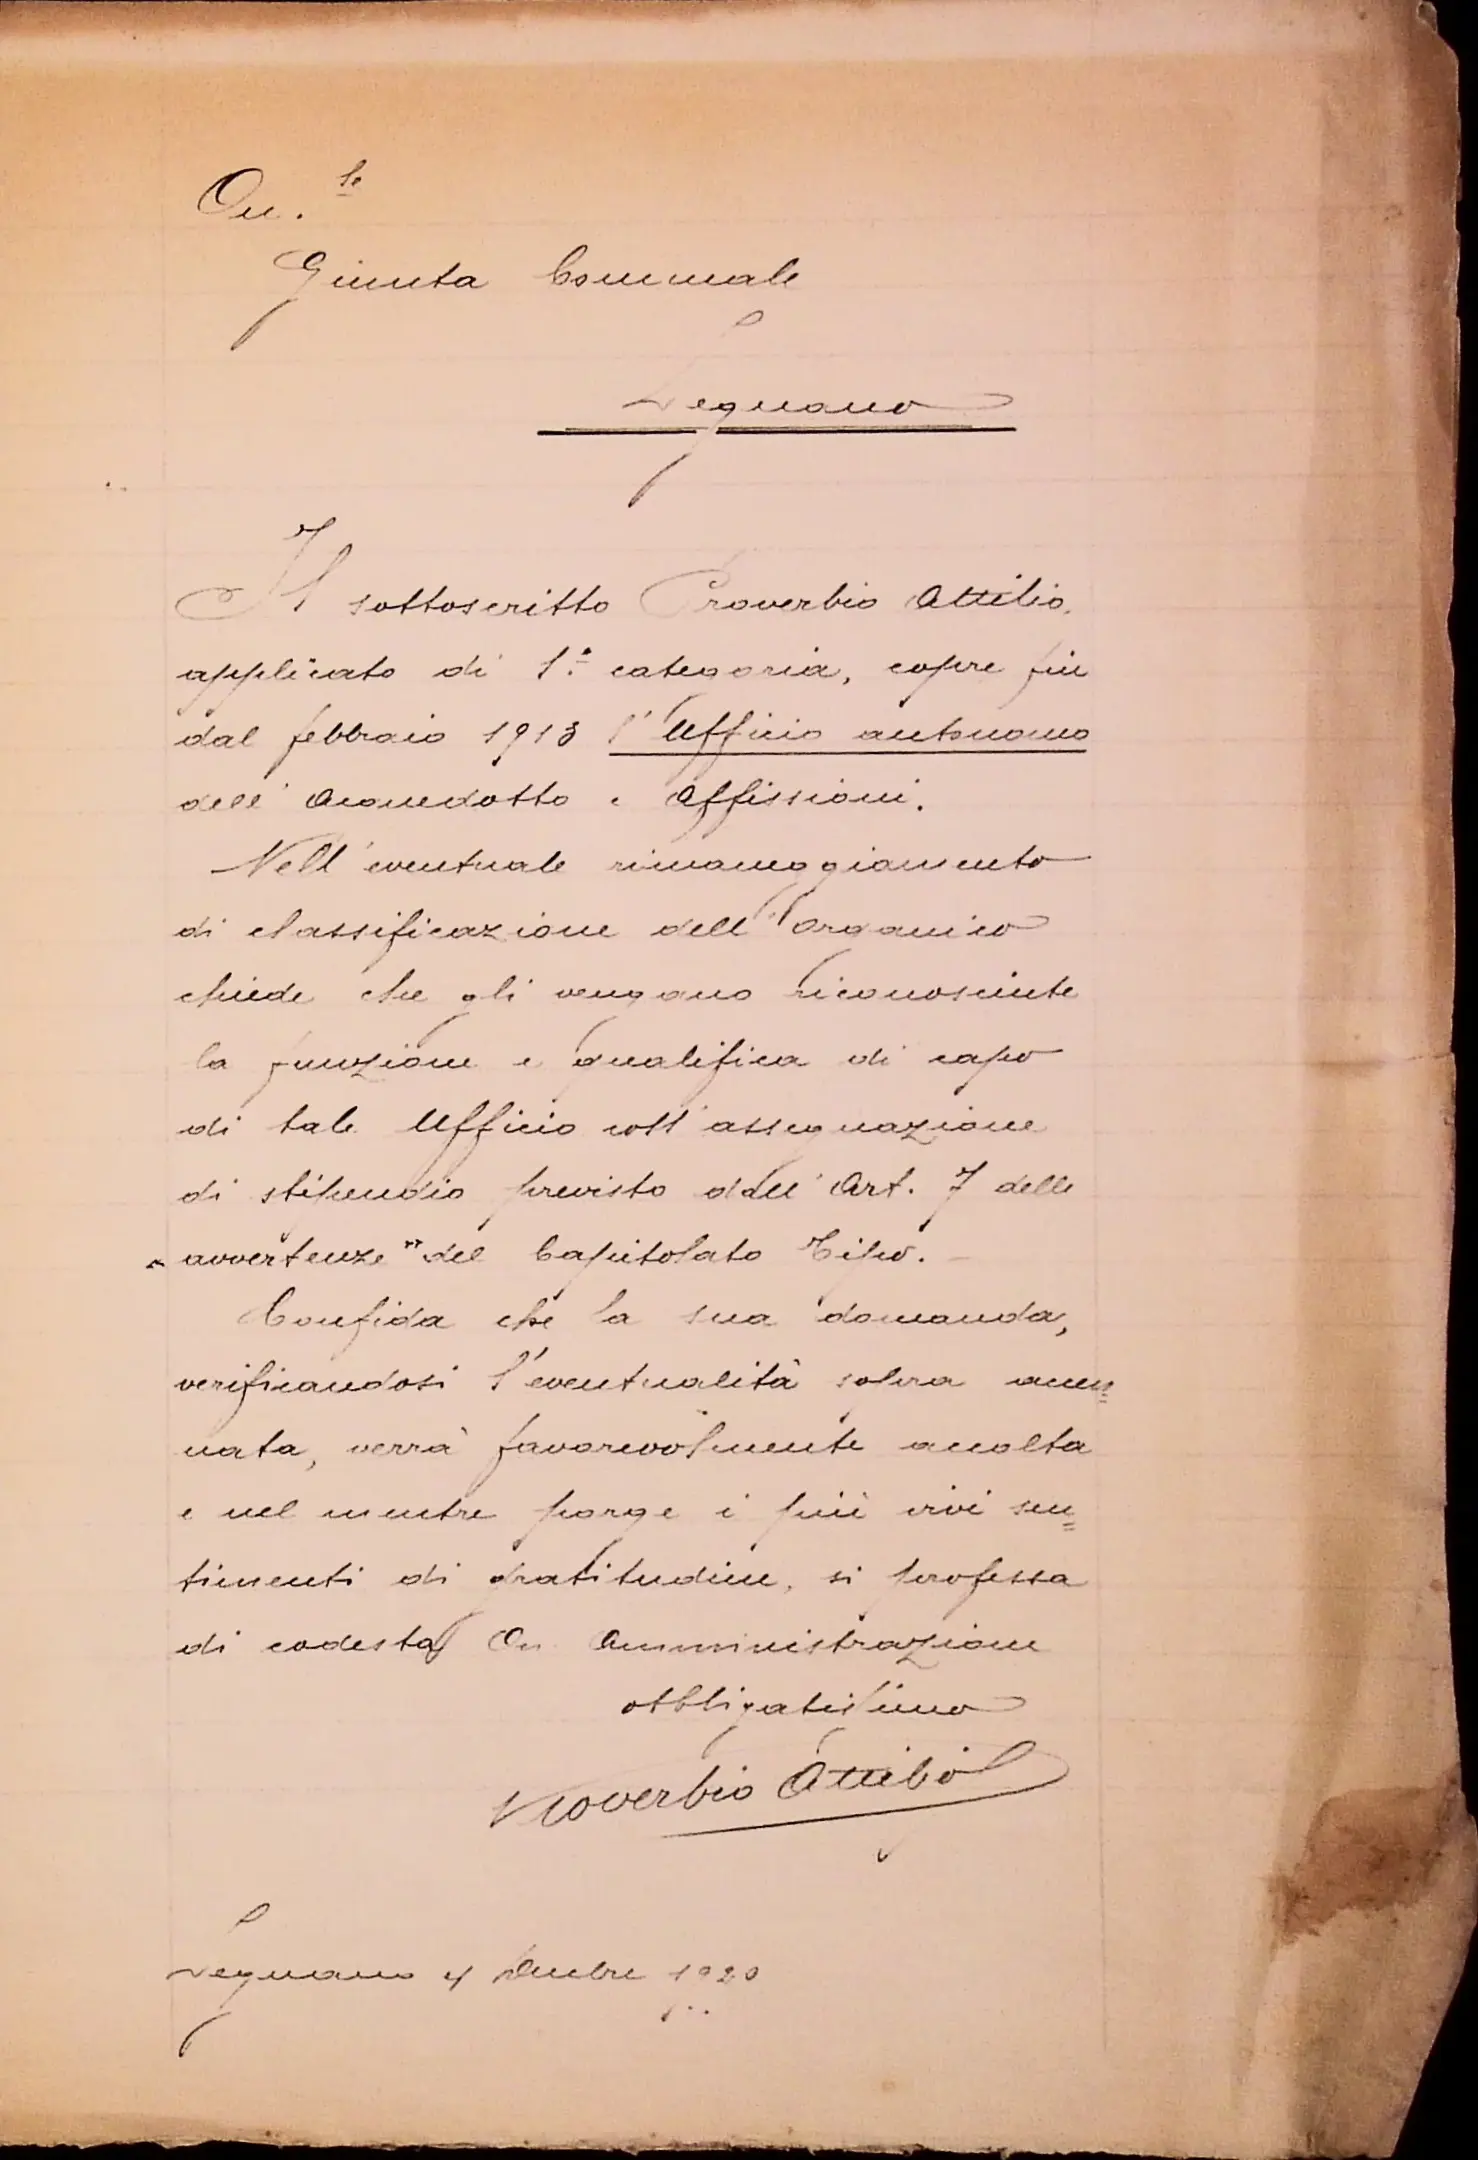 On.le
Giunta Comunale
Legnano
Il sottoscritto Proverbio Attilio,
applicato di 1.a categoria, copre fin
dal febbraio 1913 l'Ufficio autonomo
dell'Acquedotto e Affissioni.
Nell'eventuale rimaneggiamento
di classificazione dell'organico
chiede che gli vengano riconosciute
la funzione e qualifica di capo
di tale Ufficio coll'assegnazione
di stipendio previsto dall'Art. 7 delle
"avvertenze" del Capitolato Tipo. -
Confida che la sua domanda,
verificandosi l'eventualità sopra accen=
nata, verrà favorevolmente accolta
e nel mentre porge i più vivi sen=
timenti di gratitudine, si professa
di codesta On. Amministrazione
obbligatissimo
Proverbio Attilio
Legnano 4 1920